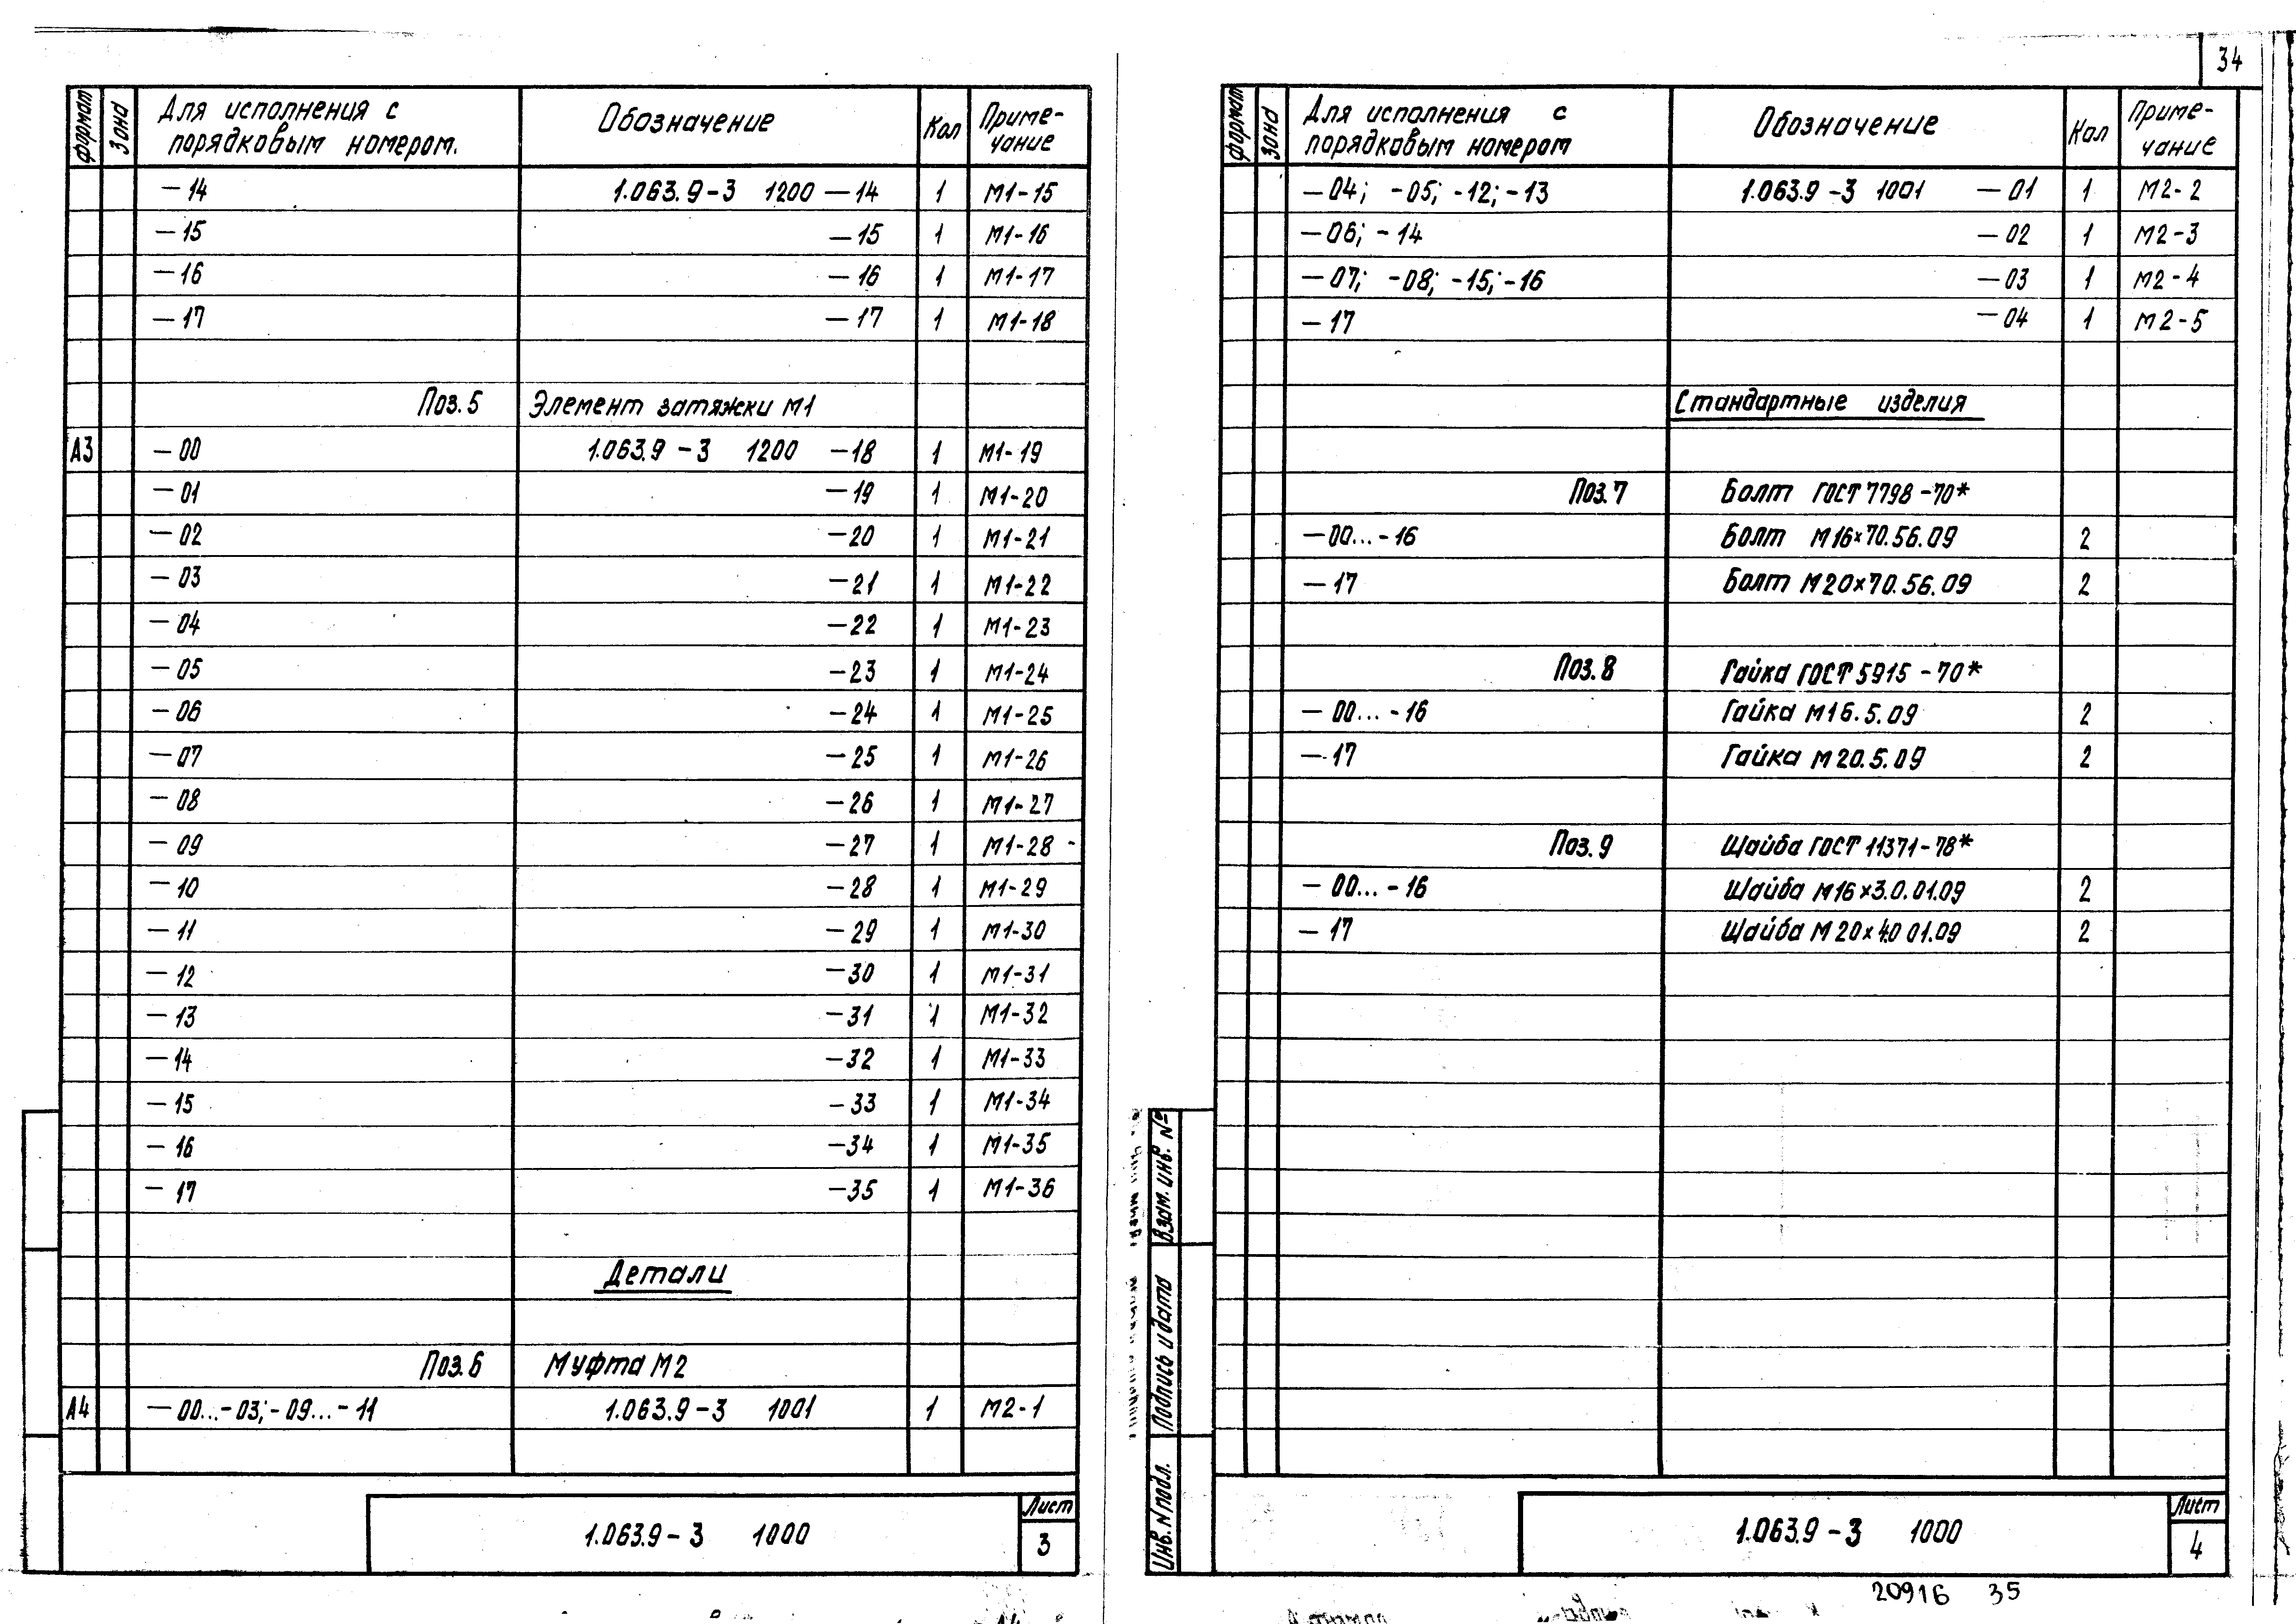 34
формат Зона Для исполнения с порядковым номером. Обозначение Кол Приме-чание
—14 1.063.9-3 1200 —14 1 М1-15
—15 —15 1 М1-16
—16 —16 1 М1-17
—17 —17 1 М1-18
Поз.5 Элемент затяжки М1
А3 —00 1.063.9-3 1200 —18 1 М1-19
—01 —19 1 М1-20
—02 —20 1 М1-21
—03 —21 1 М1-22
—04 —22 1 М1-23
—05 —23 1 М1-24
—06 —24 1 М1-25
—07 —25 1 М1-26
—08 —26 1 М1-27
—09 —27 1 М1-28
—10 —28 1 М1-29
—11 —29 1 М1-30
—12 —30 1 М1-31
—13 —31 1 М1-32
—14 —32 1 М1-33
—15 —33 1 М1-34
—16 —34 1 М1-35
—17 —35 1 М1-36
Детали
Поз.6 Муфта М2
А4 —00...-03;-09...-11 1.063.9-3 1001 1 М2-1
1.063.9-3 1000
Лист
3
формат Зона Для исполнения с порядковым номером Обозначение Кол Приме-чание
—04; -05; -12; -13 1.063.9-3 1001 —01 1 М2-2
—06; -14 —02 1 М2-3
—07; -08; -15; -16 —03 1 М2-4
—17 —04 1 М2-5
Стандартные изделия
Поз.7 Болт ГОСТ 7798-70*
—00...-16 Болт М16×70.56.09 2
—17 Болт М20×70.56.09 2
Поз.8 Гайка ГОСТ 5915-70*
—00...-16 Гайка М16.5.09 2
—17 Гайка М20.5.09 2
Поз.9 Шайба ГОСТ 11371-78*
—00...-16 Шайба М16×3.0.01.09 2
—17 Шайба М20×4.0 01.09 2
Взам. инв. №
Подпись и дата
Инв. N подл.
1.063.9-3 1000
Лист
4
20916 35